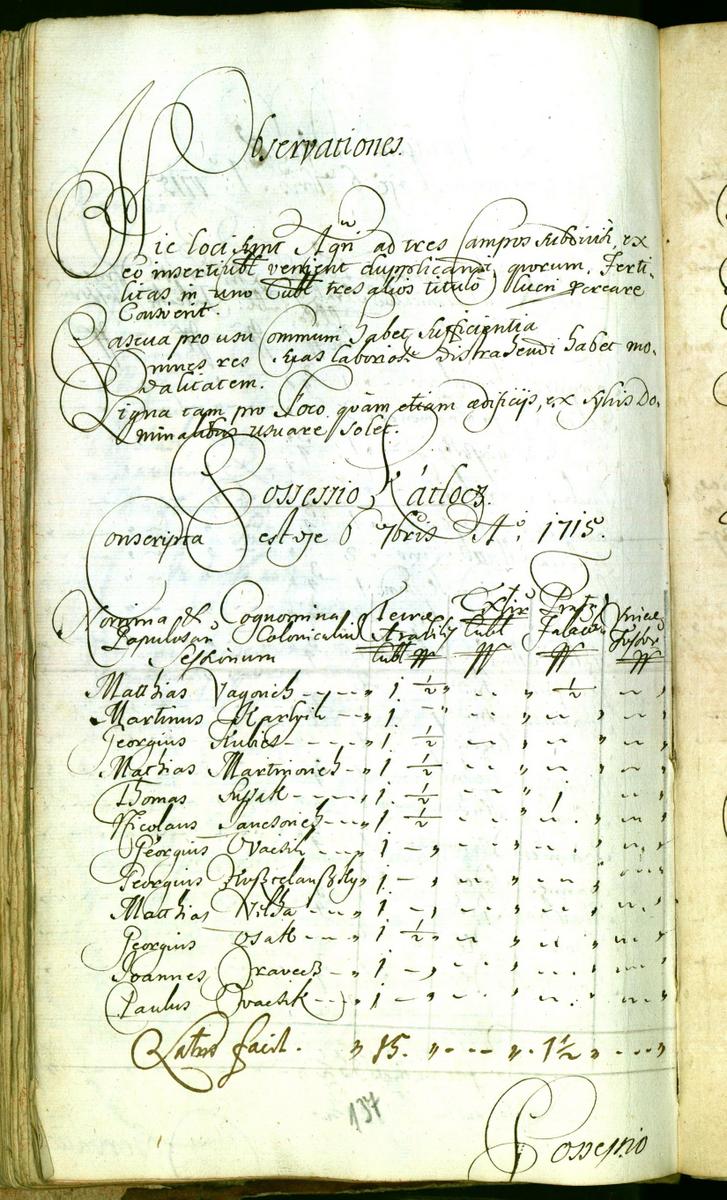 Observationes.
Hic loci sunt Agri ad tres Campos subdivisi, ex
eo inserti Cubl. venient dupplicandi, quorum Ferti-
litas in uno Cubl. tres alios titulo lucri procreare
Consvevit.
Pascua pro usu Communi habet sufficientia
Omnes res suas laboriose distrahendi habet mo-
dalitatem.
Ligna tam pro Foco quam etiam aedificijs, ex sylvis Do-
minalibus usuare solet.
Possessio Kátlocz.
Conscripta est die 6 7bris Aō. 1715.
Nomina et Cognomina Terrae Extir Prat. Vineae
Populosarū Colonicaliū Arabilis Cubl. Falcat. Fossor.
Sessionum Cubl.
Matthias Vagovich 1. 1/2 1/2
Martinus 1.
Georgius Kubics 1. 1/2
Mathias Martinovich 1. 1/2
Thomas 1. 1/2 1
Nicolaus Janctovich 1. 1/2
Georgius Ovacsik 1
Georgius 1
Matthias Vilha 1
Georgius Osak 1 1/2
Joannes Oravecz 1
Paulus Ovacsik 1
Latus facit. 15. 1 1/2
137
Possessio